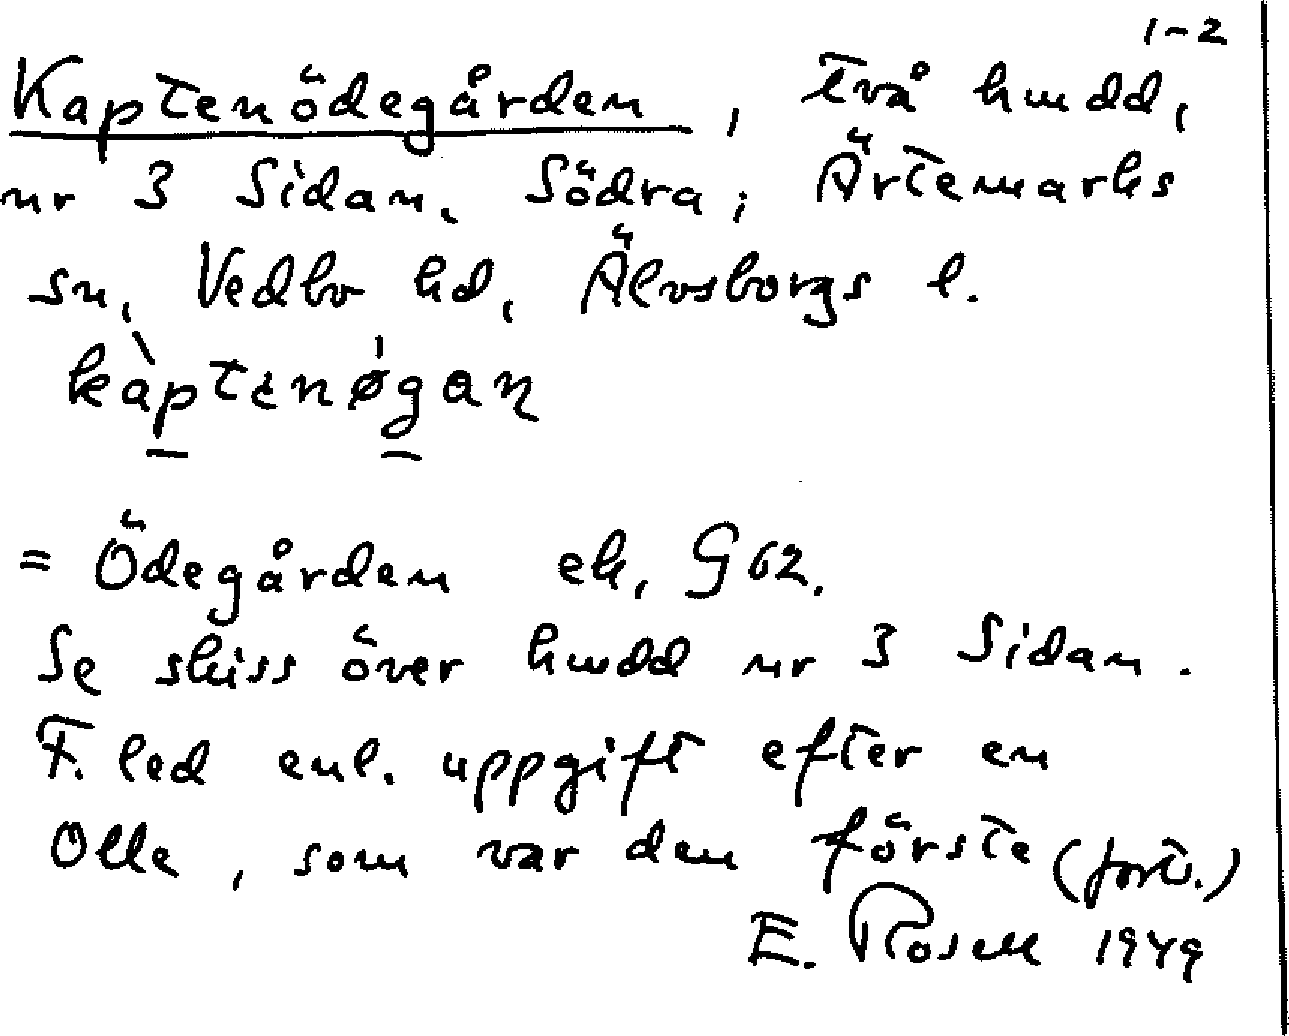 1-2
Kaptenödegården, två hmdd,
nr 3 Sidan, Södra, Ärtemarks
sn, Vedbo hd, Älvsborgs l.
kàptenǿgan
= Ödegården ek, G 62.
Se skiss över hmdd nr 3 Sidan.
F. led enl. uppgift efter en
Olle, som var den förste (forts.)
E. Rosell 1949